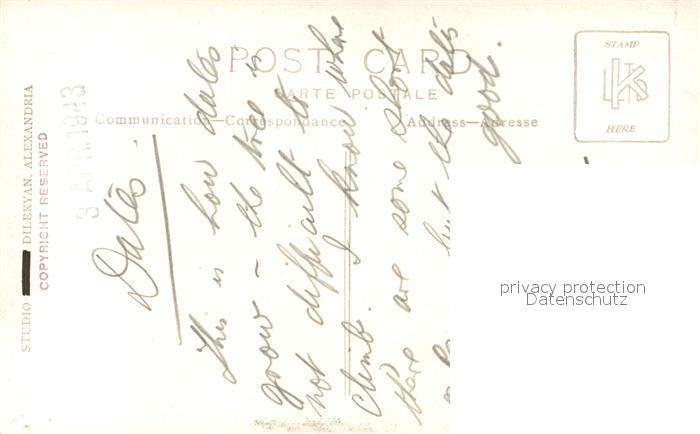 POST CARD
CARTE POSTALE
Communication—Correspondance
Address—Adresse
STAMP
HERE
STUDIO DILEKYAN, ALEXANDRIA
COPYRIGHT RESERVED
3 APR 1943
Dates.
This is how dates
grow - the tree is
not difficult to
climb. I know where
there are some short
but the dates
good.
privacy protection
Datenschutz